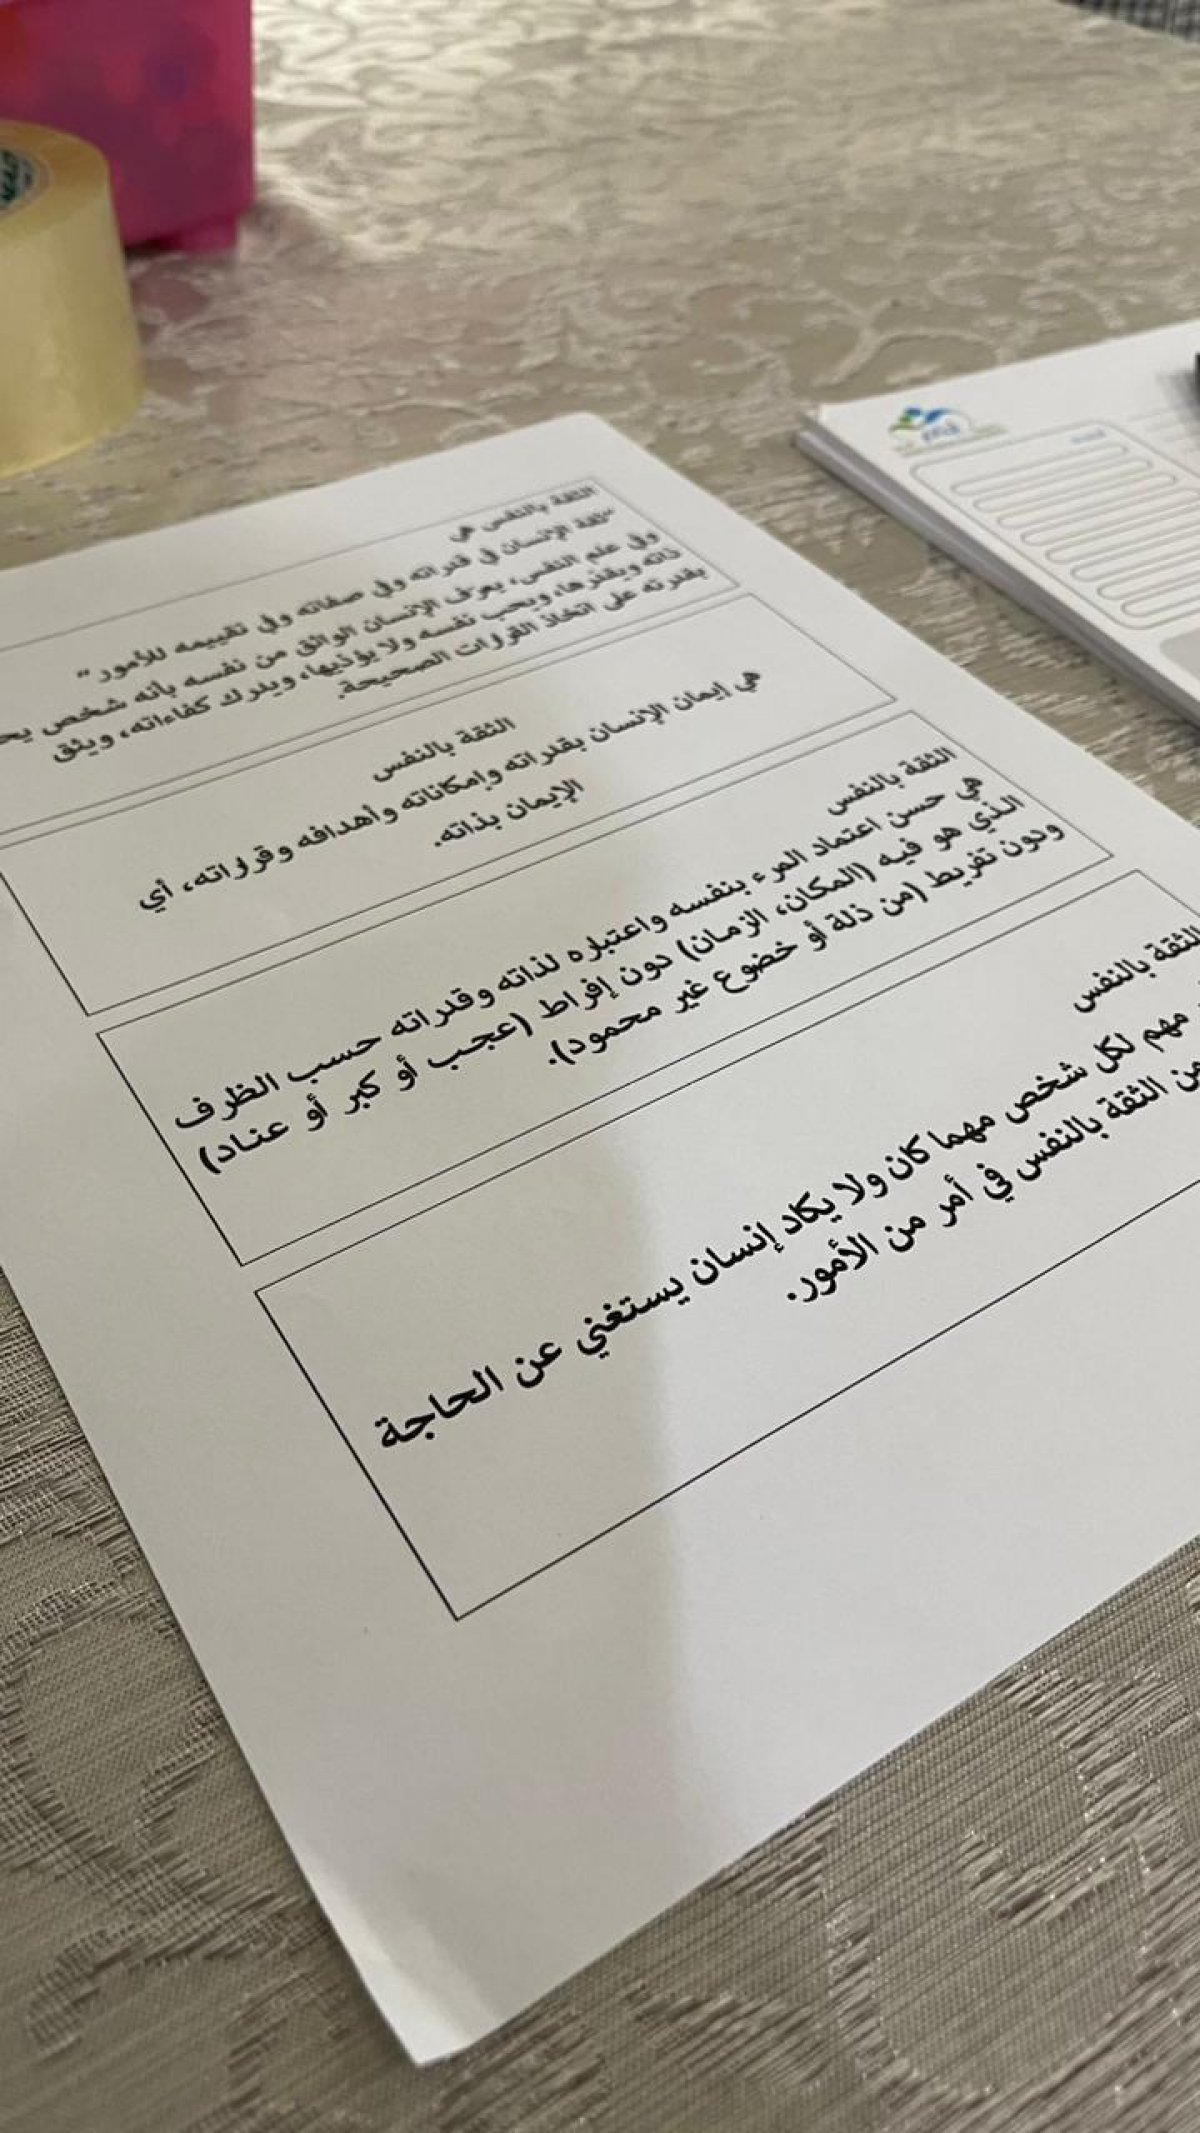 الثقة بالنفس هي
"ثقة الإنسان في قدراته وفي صفاته وفي تقييمه للأمور"
وفي علم النفس، يعرّف الإنسان الواثق من نفسه بأنه شخص
ذاته ويقدّرها، ويحب نفسه ولا يؤذيها، ويدرك كفاءاته، ويثق
بقدرته على اتخاذ القرارات الصحيحة.
الثقة بالنفس
هي إيمان الإنسان بقدراته وإمكاناته وأهدافه وقراراته، أي
الإيمان بذاته.
الثقة بالنفس
هي حسن اعتماد المرء بنفسه واعتباره لذاته وقدراته حسب الظرف
الذي هو فيه (المكان، الزمان) دون إفراط (عجب أو كبر أو عناد)
ودون تفريط (من ذلة أو خضوع غير محمود).
الثقة بالنفس
مهم لكل شخص مهما كان ولا يكاد إنسان يستغني عن الحاجة
من الثقة بالنفس في أمر من الأمور.